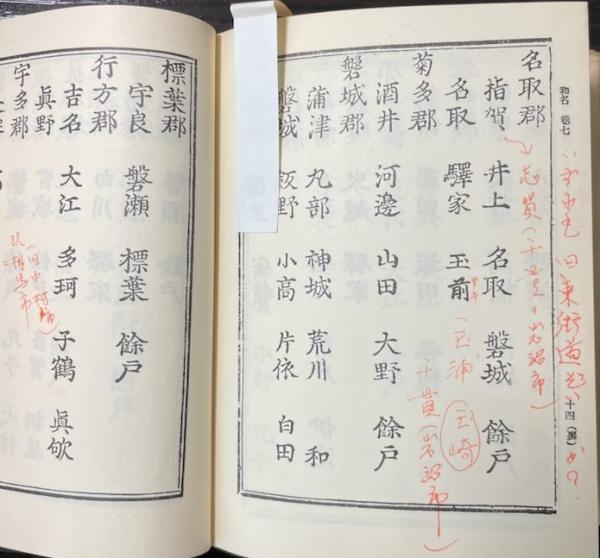 和名 卷七
十四(裏)
名取郡
指賀 井上 名取 磐城 餘戸
名取 驛家 玉前
菊多郡
酒井 河邊 山田 大野 餘戸
磐城郡
蒲津 丸部 神城 荒川 和
磐城 飯野 小高 片依 白田
志賀(千貫)岩沼市)
(玉浦 玉崎
千貫(岩沼市)
標葉郡
宇良 磐瀬 標葉 餘戸
行方郡
吉名 大江 多珂 子鶴 眞欿
眞野
宇多郡